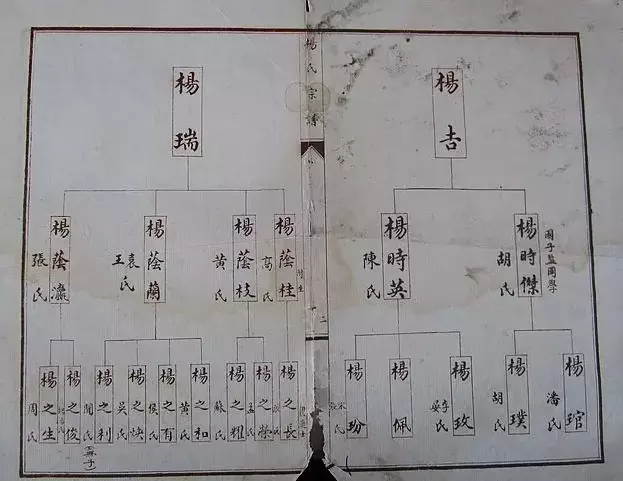 楊氏宗譜
二
楊吉
楊時傑
國子監周學
胡氏
楊時英
陳氏
楊琯
潘氏
楊璞
胡氏
楊玫
李晏氏
楊佩
楊玢
氏
楊瑞
楊蔭桂
高氏
楊蔭枝
黃氏
楊蔭蘭
袁王氏
楊蔭瀛
張氏
楊之長
氏
楊之榮
孟氏
楊之耀
蘇氏
楊之和
黃氏
楊之有
侯氏
楊之快
吳氏
楊之利
閻氏
無子
楊之俊
氏
楊之生
周氏